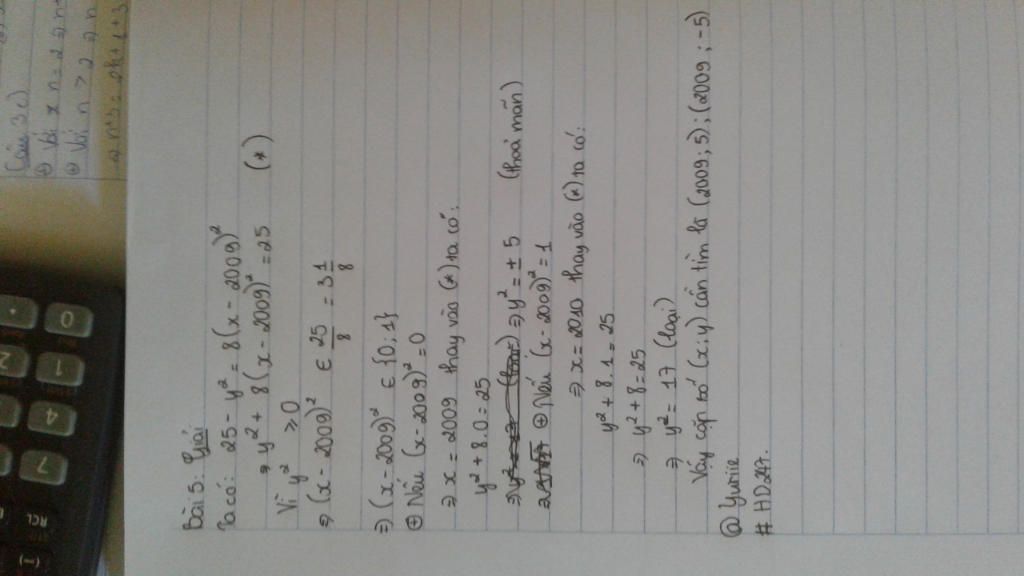 Câu 3c)
Bài 5: Giải
Ta có: 25 - y² = 8(x - 2009)²
⇒ y² + 8(x - 2009)² = 25 (*)
Vì y² ≥ 0
⇒ (x - 2009)² ∈ 25/8 = 3 1/8
⇒ (x - 2009)² ∈ {0; 1}
⊕ Nếu (x - 2009)² = 0
⇒ x = 2009 thay vào (*) ta có:
y² + 8.0 = 25
⇒ y² = ± 5 (thoả mãn)
⊕ Nếu (x - 2009)² = 1
⇒ x = 2010 thay vào (*) ta có:
y² + 8.1 = 25
⇒ y² + 8 = 25
⇒ y² = 17 (loại)
Vậy cặp số (x; y) cần tìm là (2009; 5); (2009; -5)
@ Yumie
# HD247.
0
1
2
4
7
RCL
(-)